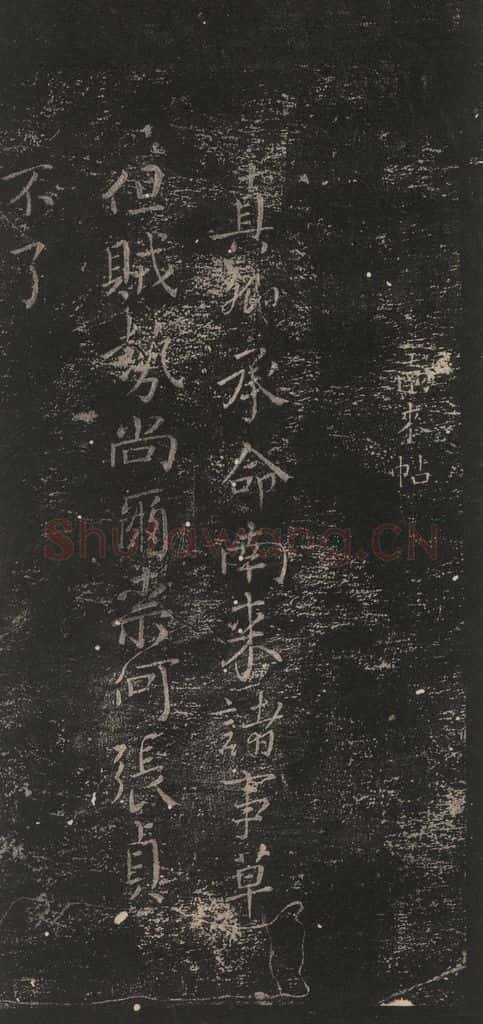 南来帖
真卿承命南来諸事草
但賊勢尚爾柰何張貞
不了
Shufawang.CN